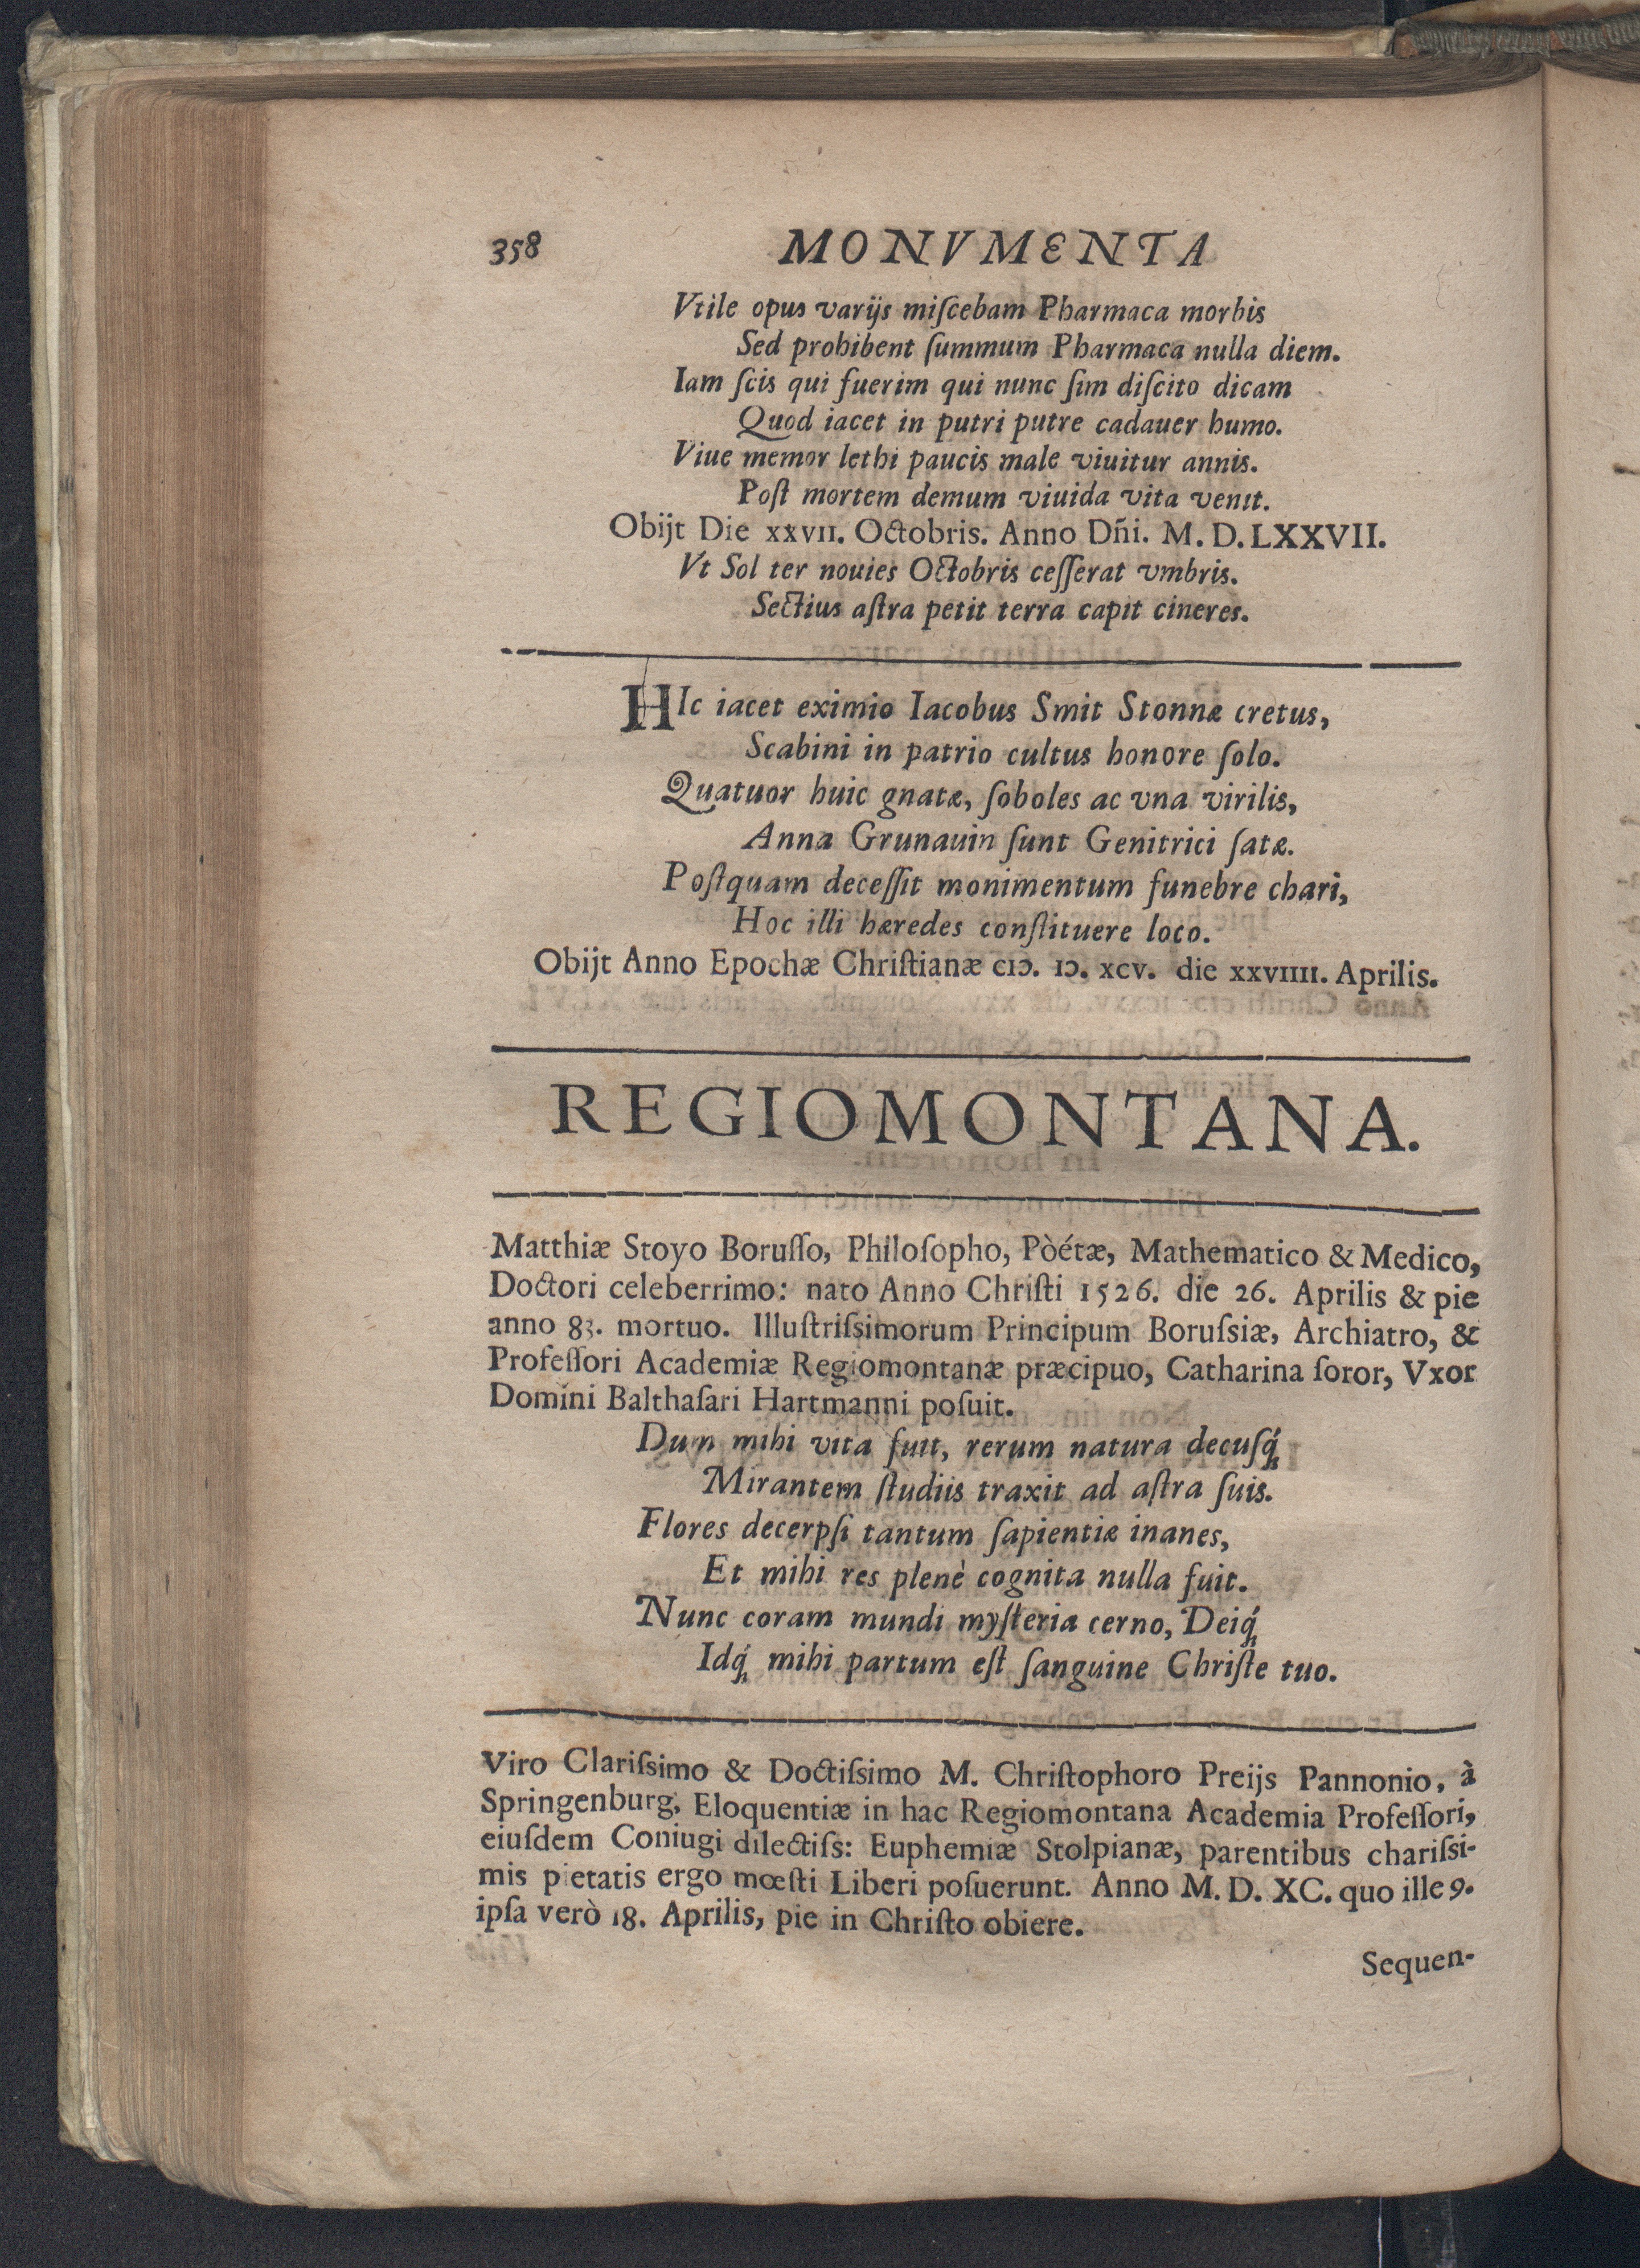 358 MONVMENTA
Vtile opus varijs miſcebam Pharmaca morbis
Sed prohibent ſummum Pharmaca nulla diem.
Iam ſcis qui fuerim qui nunc ſim diſcito dicam
Quod iacet in putri putre cadauer humo.
Viue memor lethi paucis male viuitur annis.
Poſt mortem demum viuida vita venit.
Obijt Die XXVII. Octobris. Anno Dñi. M. D. LXXVII.
Vt Sol ter nouies Octobris ceſſerat vmbris.
Sectius aſtra petit terra capit cineres.
HIc iacet eximio Iacobus Smit Stonnæ cretus,
Scabini in patrio cultus honore ſolo.
Quatuor huic gnatæ, ſoboles ac vna virilis,
Anna Grunauin ſunt Genitrici ſatæ.
Poſtquam deceſſit monimentum funebre chari,
Hoc illi hæredes conſtituere loco.
Obijt Anno Epochæ Chriſtianæ cIↃ. IↃ. xcv. die xxvIIII. Aprilis.
REGIOMONTANA.
Matthiæ Stoyo Boruſſo, Philoſopho, Pòétæ, Mathematico & Medico,
Doctori celeberrimo: nato Anno Chriſti 1526. die 26. Aprilis & pie
anno 83. mortuo. Illuſtriſsimorum Principum Boruſsiæ, Archiatro, &
Profeſſori Academiæ Regiomontanæ præcipuo, Catharina ſoror, Vxor
Domini Balthaſari Hartmanni poſuit.
Dum mihi vita fuit, rerum natura decuſq́;
Mirantem ſtudiis traxit ad aſtra ſuis.
Flores decerpſi tantum ſapientiæ inanes,
Et mihi res plenè cognita nulla fuit.
Nunc coram mundi myſteria cerno, Deiq́;
Idq́; mihi partum eſt ſanguine Chriſte tuo.
Viro Clariſsimo & Doctiſsimo M. Chriſtophoro Preijs Pannonio, à
Springenburg, Eloquentiæ in hac Regiomontana Academia Profeſſori,
eiuſdem Coniugi dilectiſs: Euphemiæ Stolpianæ, parentibus chariſsi-
mis pietatis ergo mœſti Liberi poſuerunt. Anno M. D. XC. quo ille 9.
ipſa verò 18. Aprilis, pie in Chriſto obiere.
Sequen-